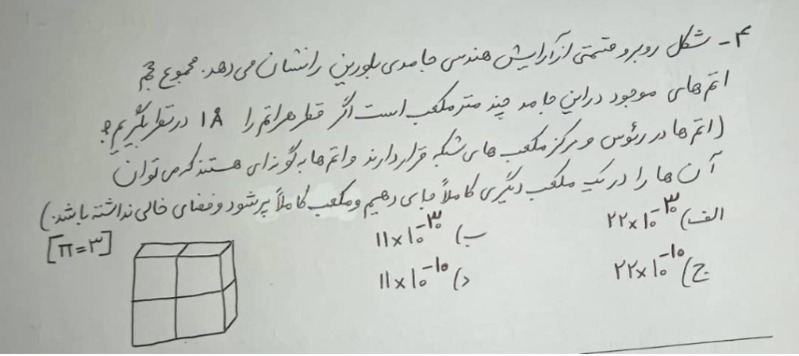 ۴- شکل روبرو قسمتی از آرایش هندسی جامدی بلورین را نشان می دهد. مجموع حجم
اتم های موجود در این جامد چند متر مکعب است اگر قطر هر اتم را ۱Å در نظر بگیریم؟
(اتم ها در رئوس و مرکز مکعب های شبکه قرار دارند و اتم ها به گونه ای هستند که می توان
آن ها را در یک مکعب دیگری کاملاً جای دهیم و مکعب کاملاً پر شود و فضای خالی نداشته باشد.)
الف) ۲۲×۱۰⁻³⁰ ب) ۱۱×۱۰⁻³⁰ [π=۳]
ج) ۲۲×۱۰⁻¹⁰ د) ۱۱×۱۰⁻¹⁰